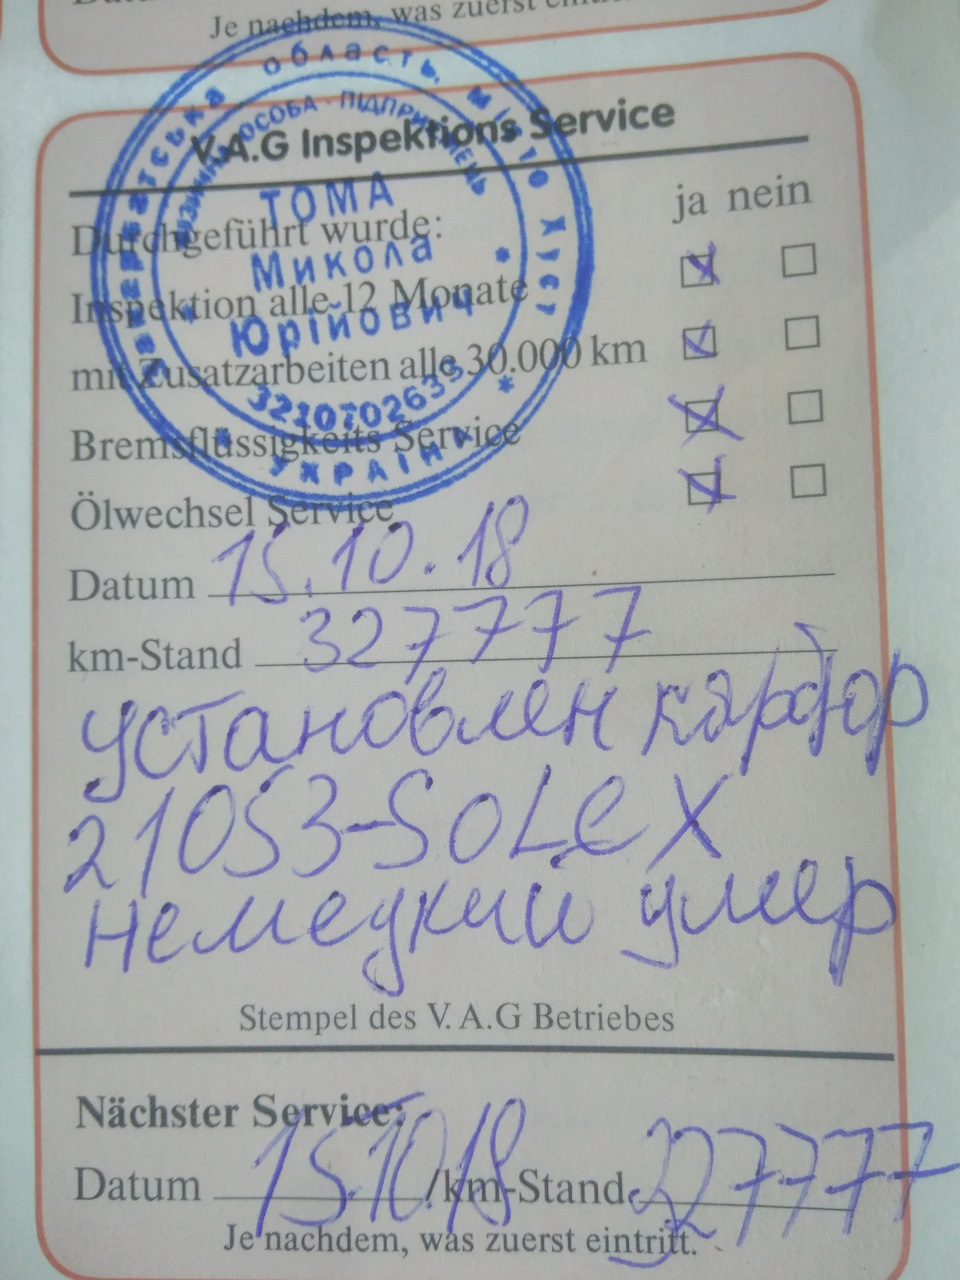 Je nachdem, was zuerst
V.A.G Inspektions Service
область, місто Хуст
ОСОБА - ПІДПРИЄМЕЦЬ
ТОМА
Микола
Юрійович
УКРАЇНА
ja nein
Durchgeführt wurde:
Inspektion alle 12 Monate
mit Zusatzarbeiten alle 30.000 km
Bremsflüssigkeits Service
Ölwechsel Service
Datum 15.10.18
km-Stand 327777
установлен карбюр
21053-SOLEX
немецкий умер
Stempel des V.A.G Betriebes
Nächster Service:
Datum 15.10.18 /km-Stand 327777
Je nachdem, was zuerst eintritt.